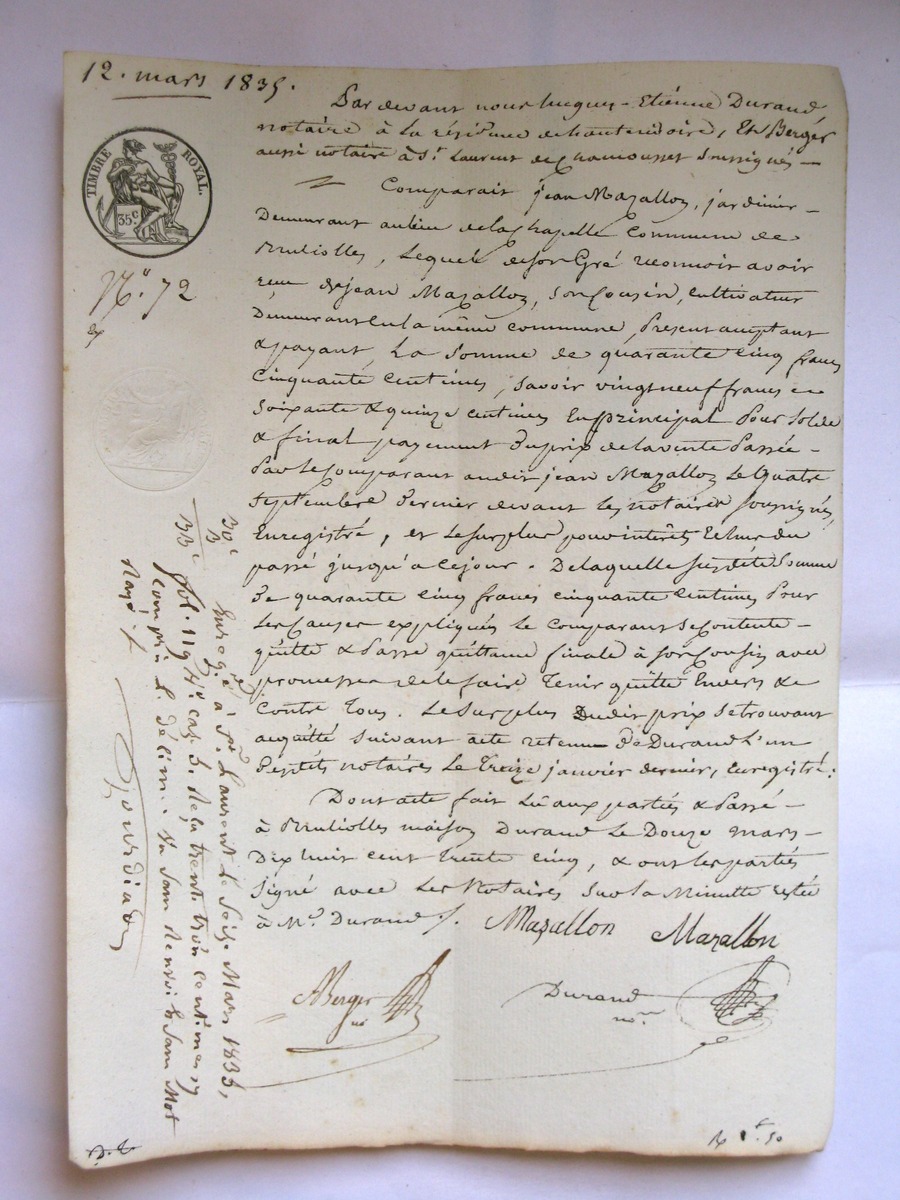 12. mars 1835.
TIMBRE ROYAL.
35c
N°. 72
Par devant nous Jacques-Etienne Durand
notaire à la résidence de hauterivoire, Et Berger
aussi notaire à St. Laurent de Chamousset Soussignés
Comparait jean Mazallon, jardinier
Demeurant au lieu de la Chapelle Commune de
Brulliolles, Lequel de son Gré reconnoir avoir
reçu de jean Mazallon, son Cousin, Cultivateur
Demeurant En la même commune, Present acceptant
& payant, La Somme de quarante Cinq francs
Cinquante Centimes, Savoir vingt neuf francs
Soixante & quinze centimes En principal Pour Solde
& final payement Du prix de la vente Passée
Par le Comparant audit jean Mazallon Le Quatre
Septembre Dernier devant Les notaires Soussignés,
Enregistré, et Le Surplus pour intérêts Echus du
passé jusqu'a ce jour. De laquelle susdite Somme
De quarante Cinq francs cinquante Centimes Pour
Les Causes expliqués Le Comparant Se Contente
quitte & Passe quittance finale à son Cousin avec
promesse de le faire Tenir quitte Envers &
Contre Tous. Le Surplus Dudit prix Se trouvant
acquitté Suivant acte retenu De Durand L'un
Desdits notaires Le Treize janvier dernier, Enregistré.
Dont acte fait Lu aux parties & Passé
à Brulliolles maison Durand Le Douze mars
Dix huit cent trente cinq, & ont Les parties
Signé avec Les Notaires Sur la Minutte restée
à Me. Durand
Mazallon Mazallon
Berger
Durand
Enregé à St Laurent Le Seize Mars 1835,
fol. 119 Ro cas 3. Reçu trente trois centimes
compris le décime
Rayé